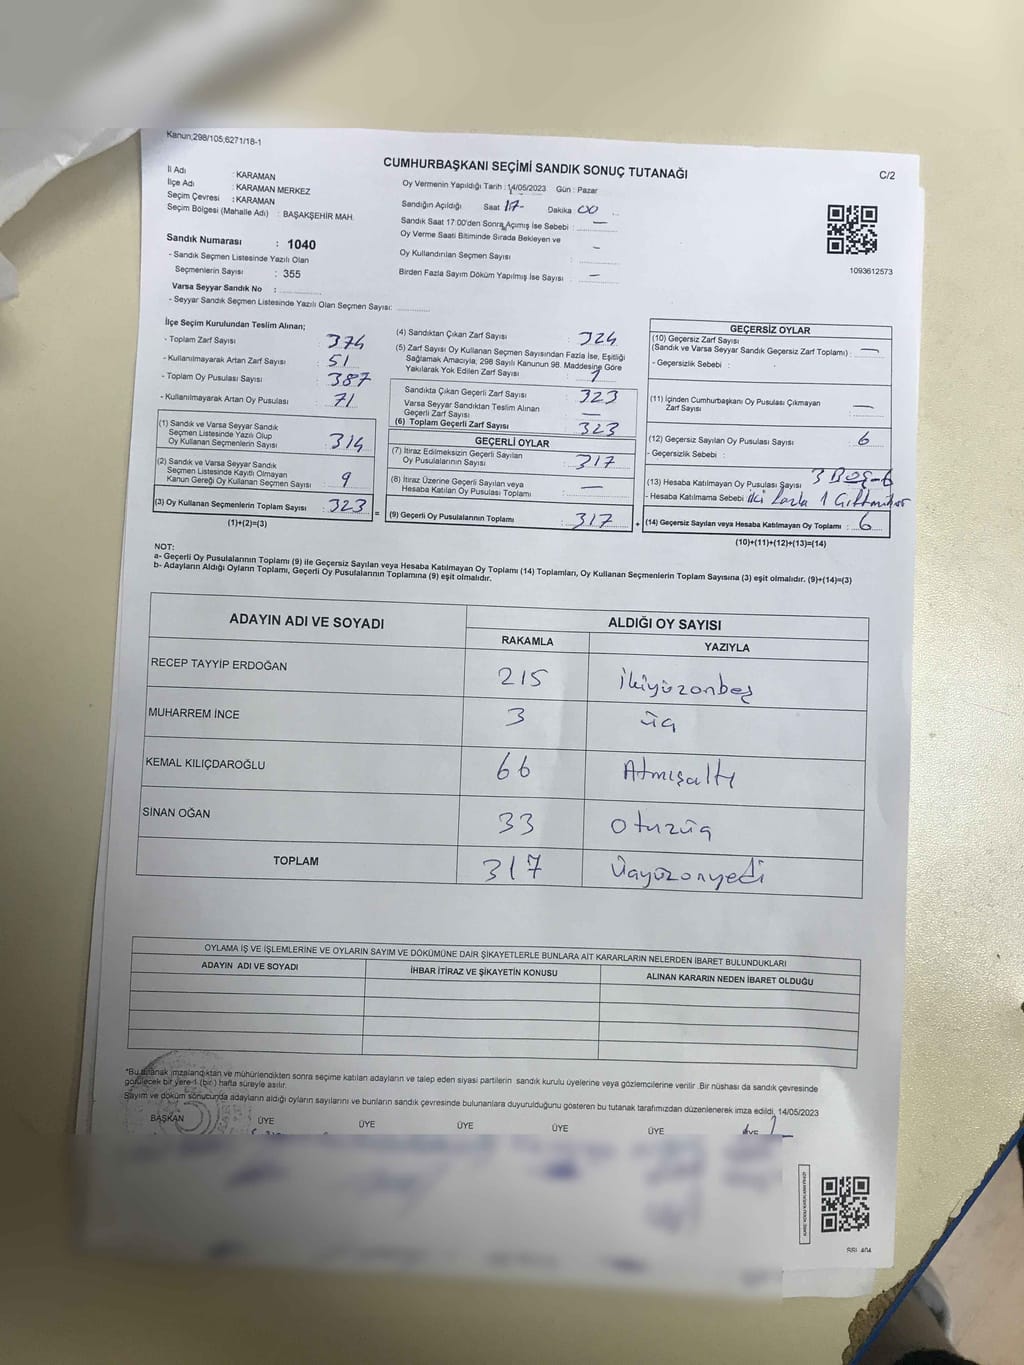 Kanun,298/105,6271/18-1
CUMHURBAŞKANI SEÇİMİ SANDIK SONUÇ TUTANAĞI
C/2
İl Adı : KARAMAN
İlçe Adı : KARAMAN MERKEZ
Seçim Çevresi : KARAMAN
Seçim Bölgesi (Mahalle Adı) : BAŞAKŞEHİR MAH.
Sandık Numarası : 1040
- Sandık Seçmen Listesinde Yazılı Olan
Seçmenlerin Sayısı : 355
Varsa Seyyar Sandık No :
- Seyyar Sandık Seçmen Listesinde Yazılı Olan Seçmen Sayısı:
Oy Vermenin Yapıldığı Tarih : 14/05/2023 Gün : Pazar
Sandığın Açıldığı Saat 17- Dakika 00
Sandık Saat 17:00'den Sonra Açımış İse Sebebi : —
Oy Verme Saati Bitiminde Sırada Bekleyen ve
Oy Kullandırılan Seçmen Sayısı : –
Birden Fazla Sayım Döküm Yapılmış İse Sayısı : –
1093612573
İlçe Seçim Kurulundan Teslim Alınan;
- Toplam Zarf Sayısı : 374
- Kullanılmayarak Artan Zarf Sayısı : 51
- Toplam Oy Pusulası Sayısı : 387
- Kullanılmayarak Artan Oy Pusulası : 71
(1) Sandık ve Varsa Seyyar Sandık
Seçmen Listesinde Yazılı Olup
Oy Kullanan Seçmenlerin Sayısı : 314
(2) Sandık ve Varsa Seyyar Sandık
Seçmen Listesinde Kayıtlı Olmayan
Kanun Gereği Oy Kullanan Seçmen Sayısı : 9
(3) Oy Kullanan Seçmenlerin Toplam Sayısı : 323 =
(1)+(2)=(3)
(4) Sandıktan Çıkan Zarf Sayısı : 324
(5) Zarf Sayısı Oy Kullanan Seçmen Sayısından Fazla İse, Eşitliği
Sağlamak Amacıyla, 298 Sayılı Kanunun 98. Maddesine Göre
Yakılarak Yok Edilen Zarf Sayısı : 1
Sandıkta Çıkan Geçerli Zarf Sayısı : 323
Varsa Seyyar Sandıktan Teslim Alınan
Geçerli Zarf Sayısı : —
(6) Toplam Geçerli Zarf Sayısı : 323
GEÇERLİ OYLAR
(7) İtiraz Edilmeksizin Geçerli Sayılan
Oy Pusulalarının Sayısı : 317
(8) İtiraz Üzerine Geçerli Sayılan veya
Hesaba Katılan Oy Pusulası Toplamı : —
(9) Geçerli Oy Pusulalarının Toplamı : 317 +
GEÇERSİZ OYLAR
(10) Geçersiz Zarf Sayısı
(Sandık ve Varsa Seyyar Sandık Geçersiz Zarf Toplamı) : —
- Geçersizlik Sebebi :
(11) İçinden Cumhurbaşkanı Oy Pusulası Çıkmayan
Zarf Sayısı : —
(12) Geçersiz Sayılan Oy Pusulası Sayısı : 6
- Geçersizlik Sebebi :
(13) Hesaba Katılmayan Oy Pusulası Sayısı 3 Boş-6
- Hesaba Katılmama Sebebi iki fazla 1
(14) Geçersiz Sayılan veya Hesaba Katılmayan Oy Toplamı : 6
(10)+(11)+(12)+(13)=(14)
NOT:
a- Geçerli Oy Pusulalarının Toplamı (9) ile Geçersiz Sayılan veya Hesaba Katılmayan Oy Toplamı (14) Toplamları, Oy Kullanan Seçmenlerin Toplam Sayısına (3) eşit olmalıdır. (9)+(14)=(3)
b- Adayların Aldığı Oyların Toplamı, Geçerli Oy Pusulalarının Toplamına (9) eşit olmalıdır.
ADAYIN ADI VE SOYADI
ALDIĞI OY SAYISI
RAKAMLA YAZIYLA
RECEP TAYYİP ERDOĞAN 215 ikiyüzonbeş
MUHARREM İNCE 3 üç
KEMAL KILIÇDAROĞLU 66 Atmışaltı
SİNAN OĞAN 33 otuzüç
TOPLAM 317 Üçyüzonyedi
OYLAMA İŞ VE İŞLEMLERİNE VE OYLARIN SAYIM VE DÖKÜMÜNE DAİR ŞİKAYETLERLE BUNLARA AİT KARARLARIN NELERDEN İBARET BULUNDUKLARI
ADAYIN ADI VE SOYADI İHBAR İTİRAZ VE ŞİKAYETİN KONUSU ALINAN KARARIN NEDEN İBARET OLDUĞU
*Bu tutanak imzalandıktan ve mühürlendikten sonra seçime katılan adayların ve talep eden siyasi partilerin sandık kurulu üyelerine veya gözlemcilerine verilir. Bir nüshası da sandık çevresinde
görülecek bir yere 1 (bir) hafta süreyle asılır.
Sayım ve döküm sonucunda adayların aldığı oyların sayılarını ve bunların sandık çevresinde bulunanlara duyurulduğunu gösteren bu tutanak tarafımızdan düzenlenerek imza edildi. 14/05/2023
BAŞKAN ÜYE ÜYE ÜYE ÜYE ÜYE